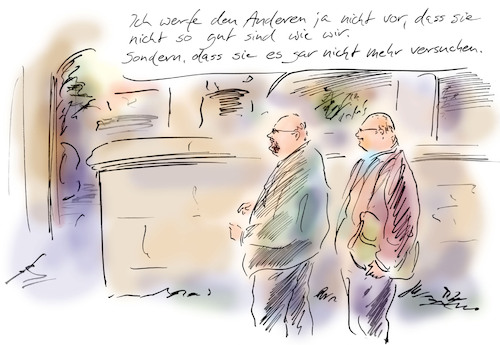 Ich werfe den Anderen ja nicht vor, dass sie
nicht so gut sind wie wir.
Sondern, dass sie es gar nicht mehr versuchen.